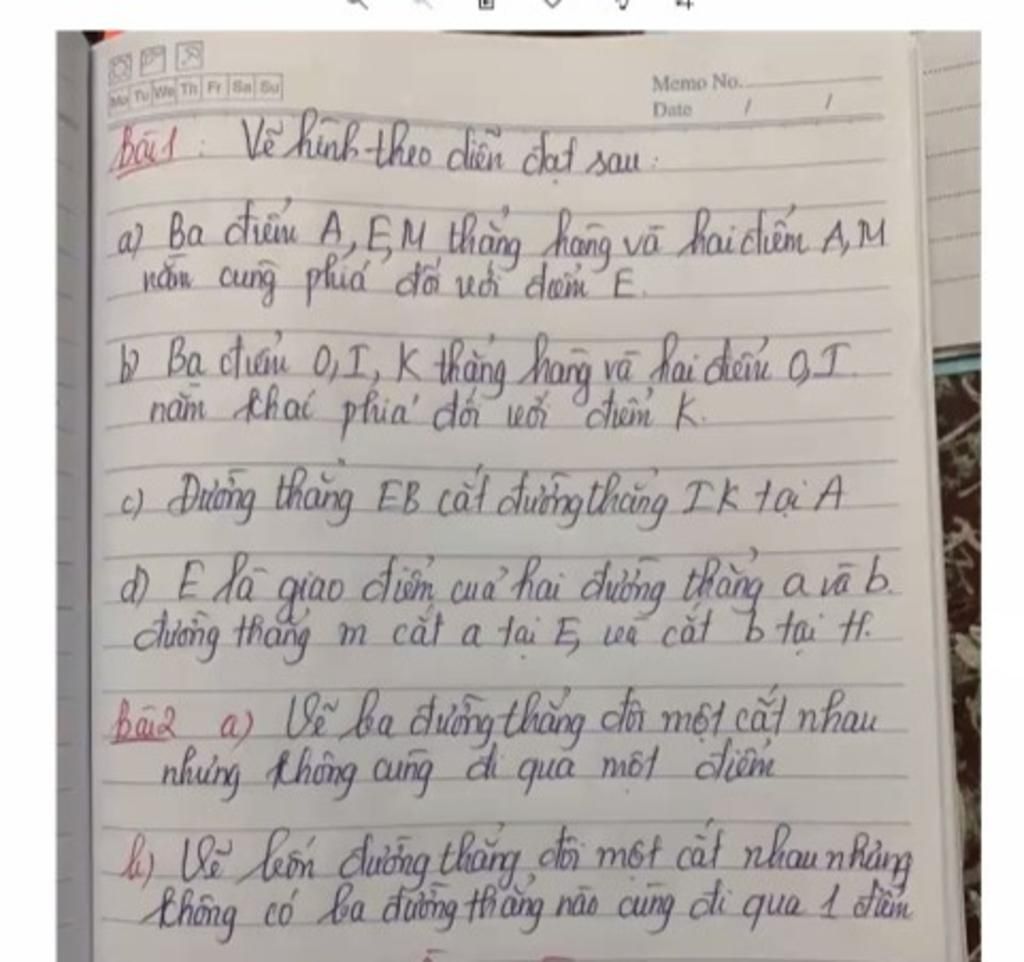 Mo Tu We Th Fr Sa Su
Memo No.
Date / /
Bài 1 : Vẽ hình theo diễn đạt sau :
a) Ba điểm A, E, M thẳng hàng và hai điểm A, M
nằm cùng phía đối với điểm E.
b) Ba điểm O, I, K thẳng hàng và hai điểm O, I
nằm khác phía đối với điểm K.
c) Đường thẳng EB cắt đường thẳng IK tại A
d) E là giao điểm của hai đường thẳng a và b.
đường thẳng m cắt a tại E, và cắt b tại H.
Bài 2 a) Vẽ ba đường thẳng đôi một cắt nhau
nhưng không cùng đi qua một điểm
b) Vẽ bốn đường thẳng đôi một cắt nhau nhưng
không có ba đường thẳng nào cùng đi qua 1 điểm